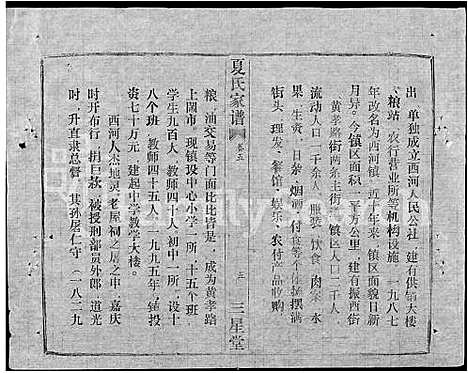 出，单独成立西河人民公社，建有供销大楼
、粮站、农行营业所等机构设施。一九八七
年改名为西河镇，近十年来，镇区面貌日新
月异。今镇区面积一平方公里，建有振西街
、黄孝路街两条主街，镇区人口二千人，
流动人口二千余人，服装、饮食、肉案、水
果、生资、日杂、烟酒、付食等个体摊摆满
街头，理发、餐馆、娱乐、农付产品收购、
夏氏家谱
卷五
三星堂
粮、油交易等门面比比皆是，成为黄孝路
上闹市。现镇设中心小学一所，十五个班，
学生九百人，教师四十人，初中一所，设十
八个班，教师四十五人，一九九五年，镇投
资七十万元，建起中学教学大楼。
西河人杰地灵，老屋祠之屠之申，嘉庆
时开布行，捐巨款，被授刑部员外郎，道光
时，升直隶总督，其孙屠仁守（一八二九